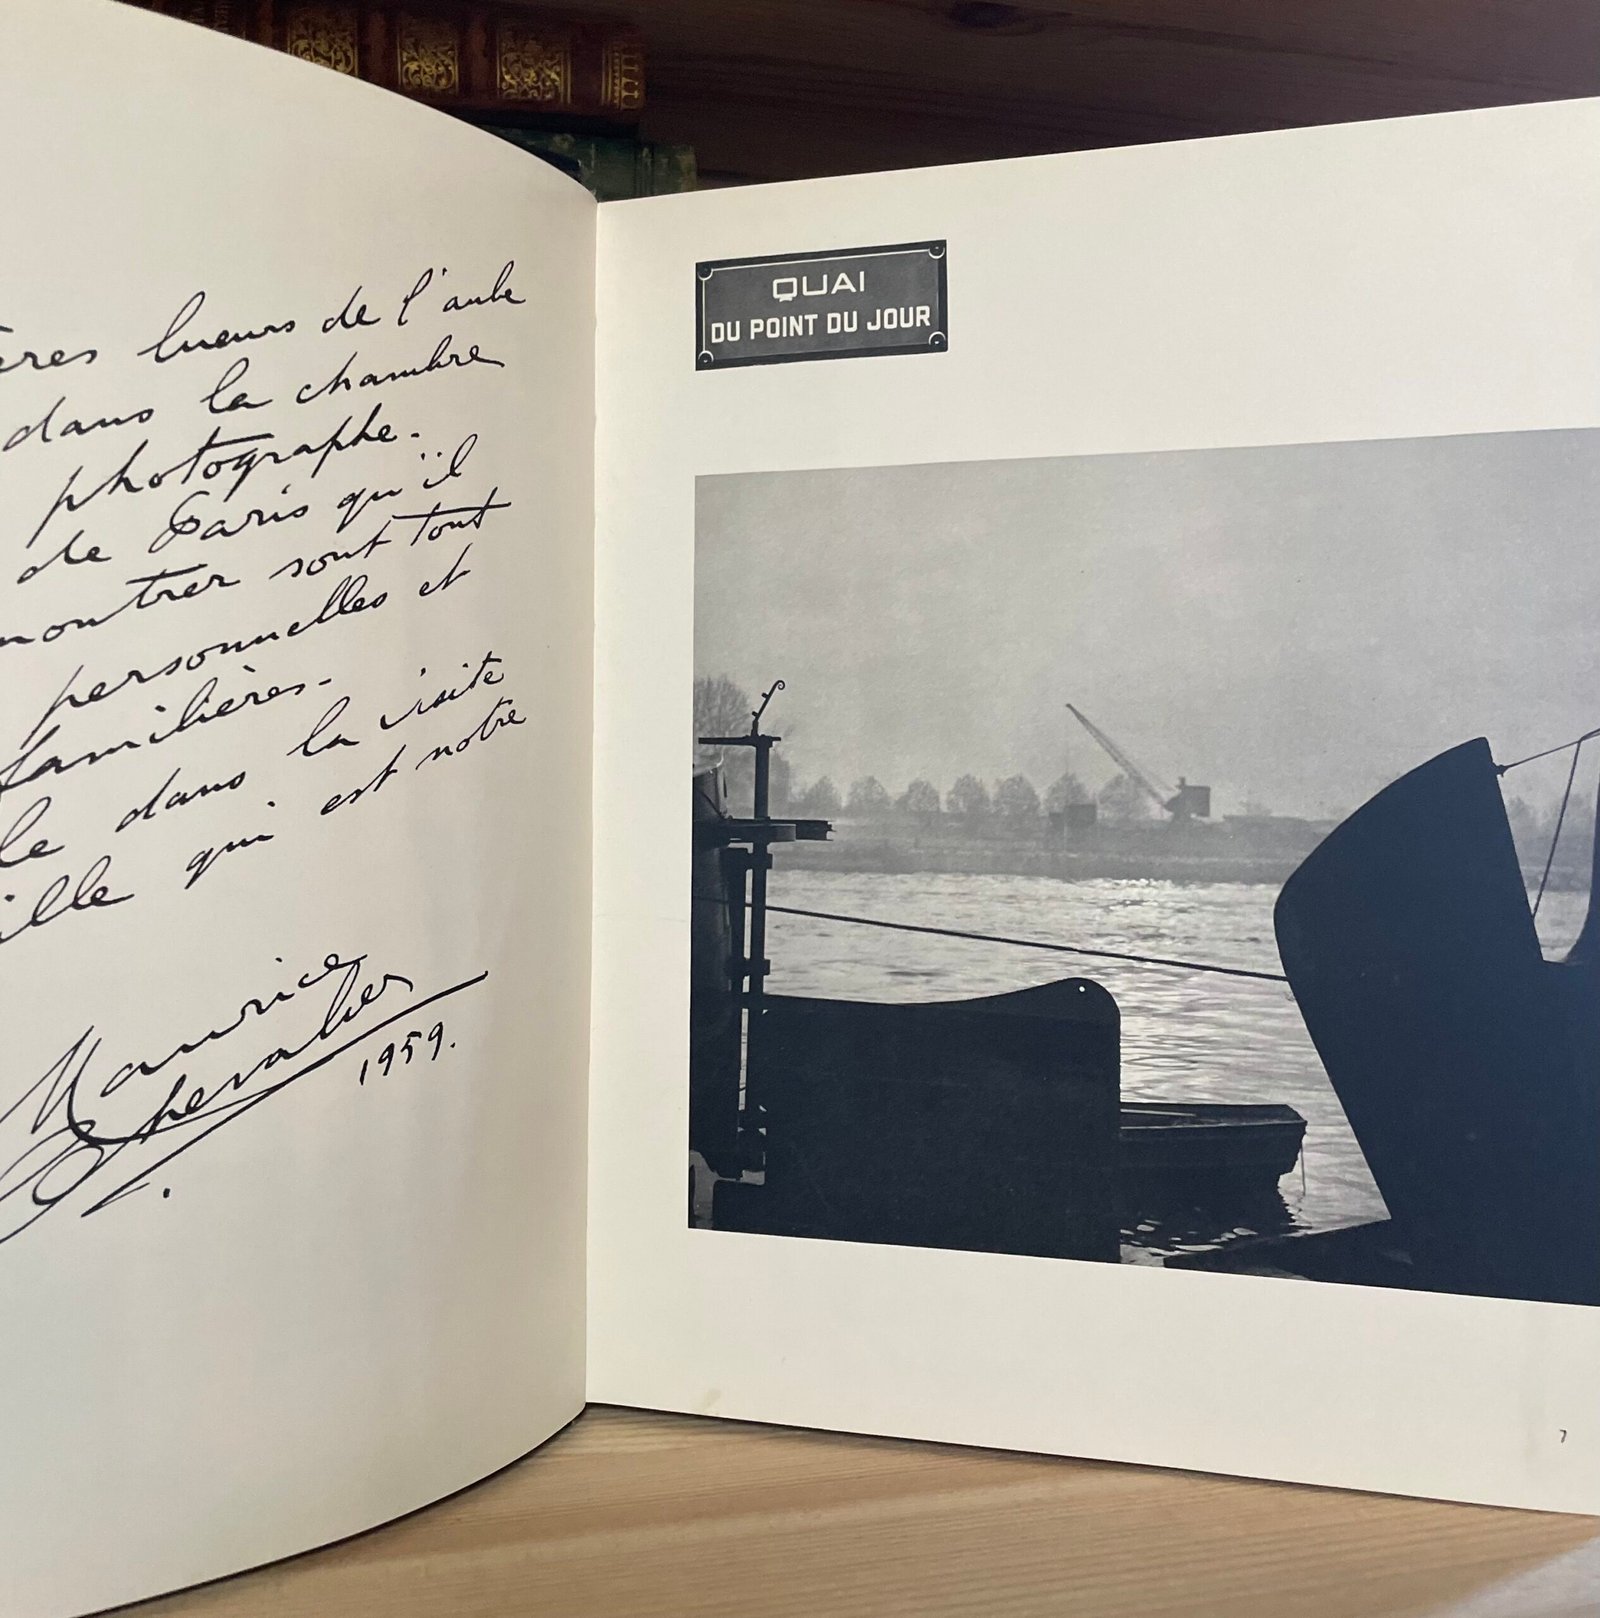 ères lueurs de l'aube
dans la chambre
photographe.
de Paris qu'il
montrer sont tout
personnelles et
familières.
le dans la visite
ille qui est notre
Maurice
Chevalier
1959.
QUAI
DU POINT DU JOUR
7